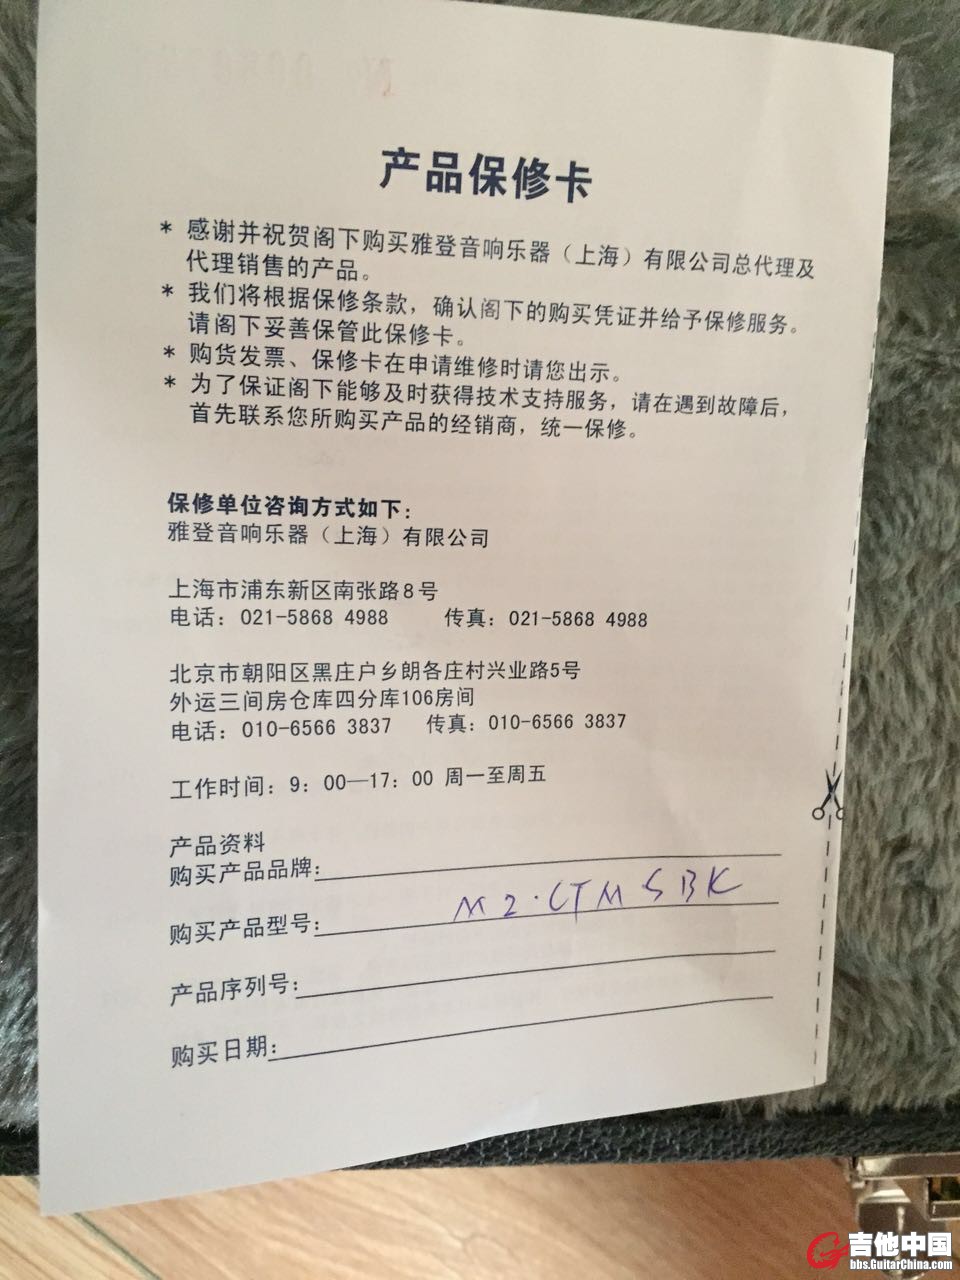 产品保修卡
* 感谢并祝贺阁下购买雅登音响乐器（上海）有限公司总代理及
代理销售的产品。
* 我们将根据保修条款，确认阁下的购买凭证并给予保修服务。
请阁下妥善保管此保修卡。
* 购货发票、保修卡在申请维修时请您出示。
* 为了保证阁下能够及时获得技术支持服务，请在遇到故障后，
首先联系您所购买产品的经销商，统一保修。
保修单位咨询方式如下：
雅登音响乐器（上海）有限公司
上海市浦东新区南张路8号
电话：021-5868 4988 传真：021-5868 4988
北京市朝阳区黑庄户乡朗各庄村兴业路5号
外运三间房仓库四分库106房间
电话：010-6566 3837 传真：010-6566 3837
工作时间：9：00—17：00 周一至周五
产品资料
购买产品品牌：
购买产品型号：M2·CTM SBK
产品序列号：
购买日期：
吉他中国
bbs.GuitarChina.com